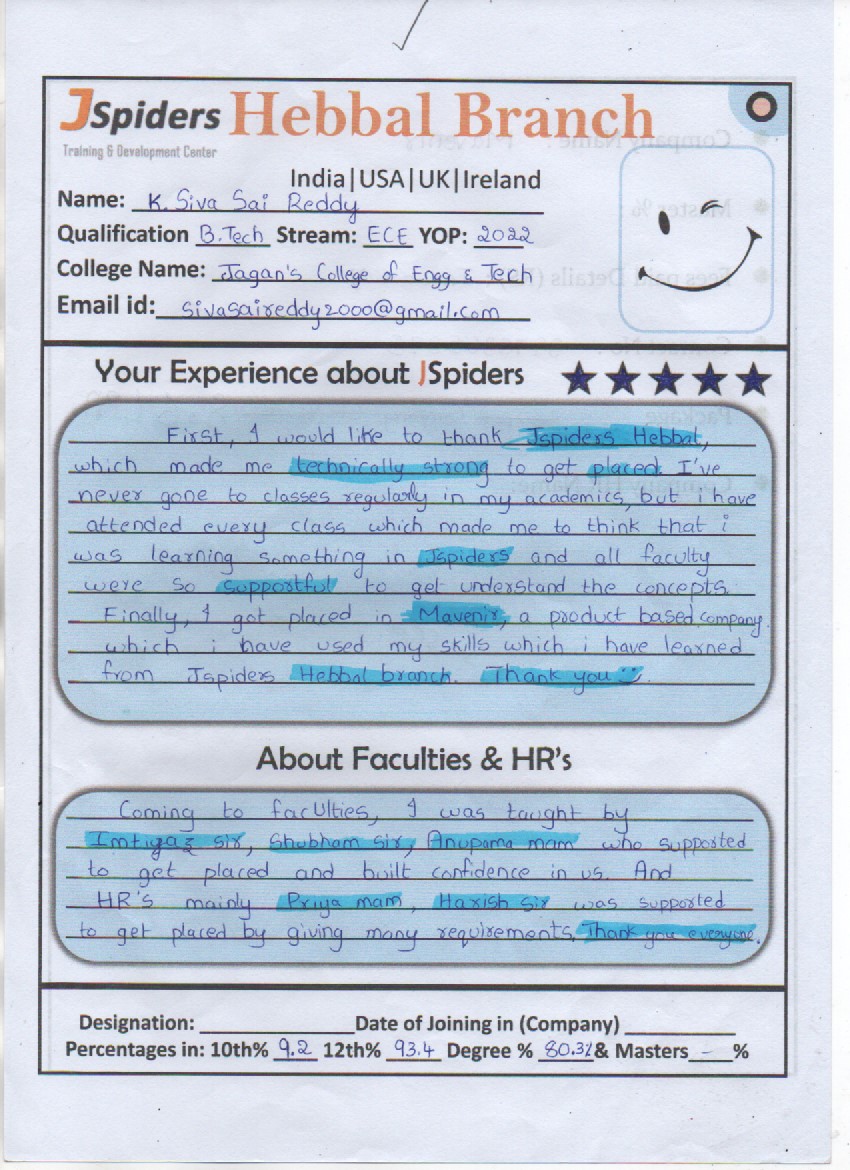 JSpiders Hebbal Branch
Training & Development Center
India|USA|UK|Ireland
Name: K. Siva Sai Reddy
Qualification B.Tech Stream: ECE YOP: 2022
College Name: Jagan's College of Engg & Tech
Email id: sivasaireddy2000@gmail.com
Your Experience about JSpiders
First, I would like to thank Jspiders Hebbal,
which made me technically strong to get placed. I've
never gone to classes regularly in my academics, but i have
attended every class which made me to think that i
was learning something in Jspiders and all faculty
were so supportful to get understand the concepts.
Finally, I got placed in Mavenir, a product based company
which i have used my skills which i have learned
from Jspiders Hebbal branch. Thank you
About Faculties & HR's
Coming to faculties, I was taught by
Imtiyaz sir, Shubham sir, Anupama mam who supported
to get placed and built confidence in us. And
HR's mainly Priya mam, Harish sir was supported
to get placed by giving many requirements. Thank you everyone.
Designation: Date of Joining in (Company)
Percentages in: 10th% 9.2 12th% 93.4 Degree % 80.3% & Masters - %